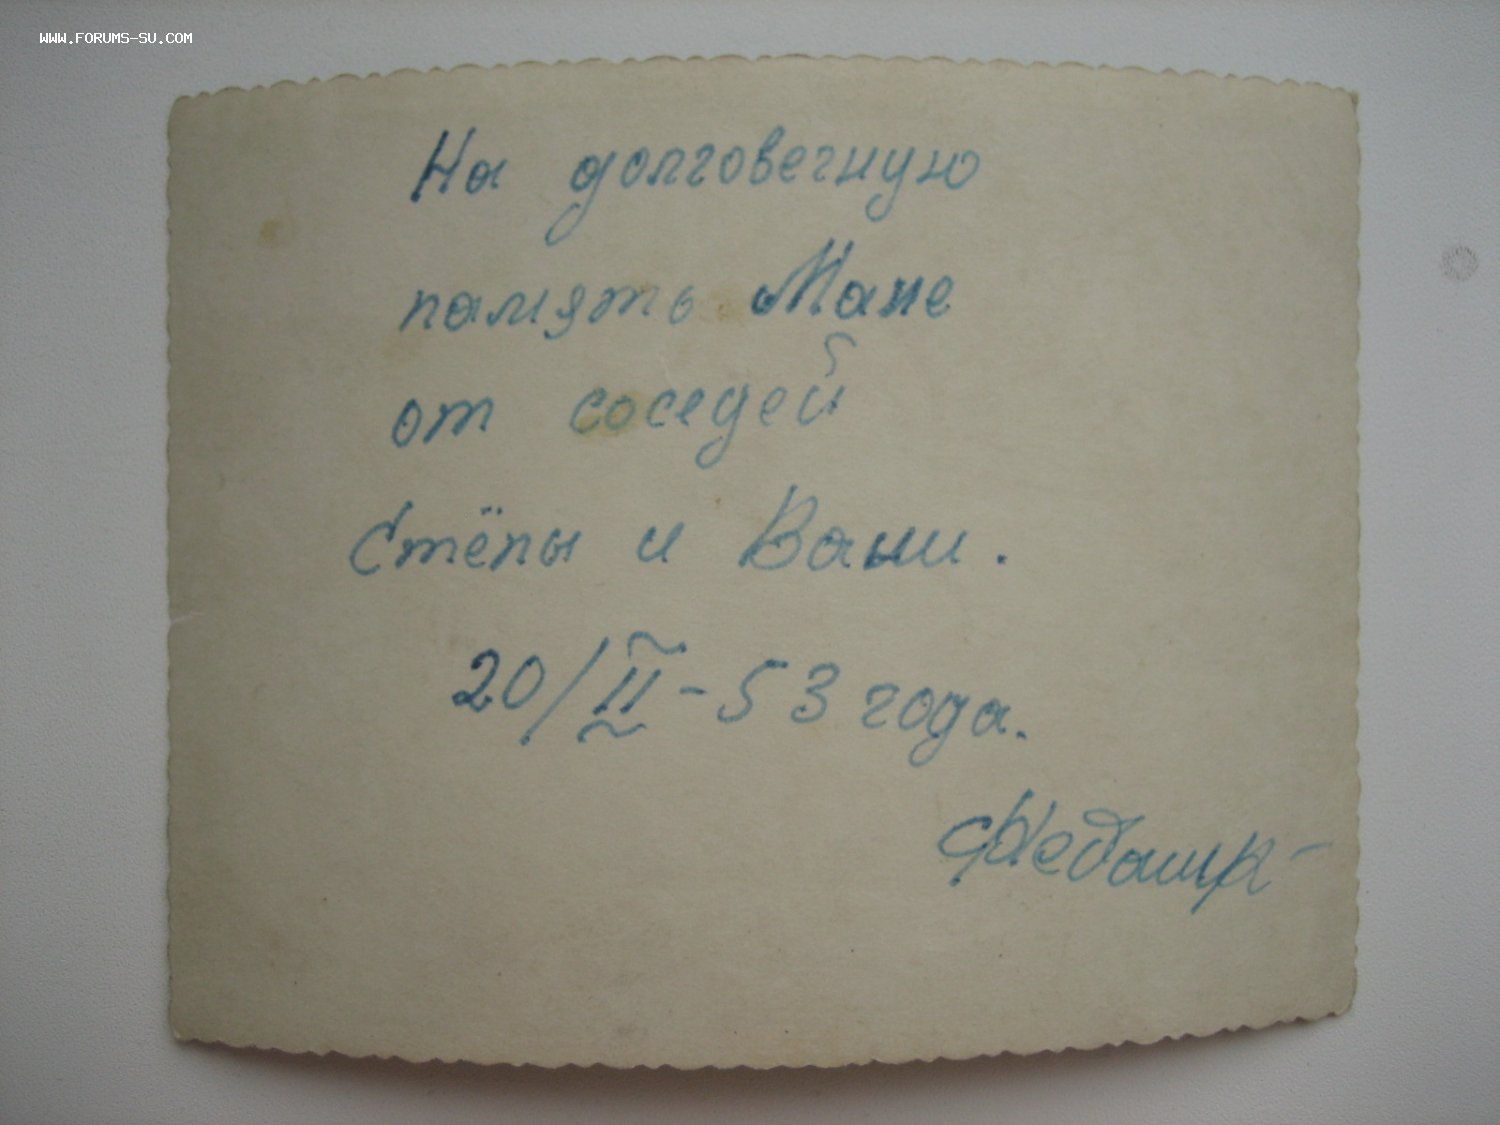 WWW.FORUMS-SU.COM
На долговечную
память Мане
от соседей
Стёпы и Вани.
20/II-53 года.